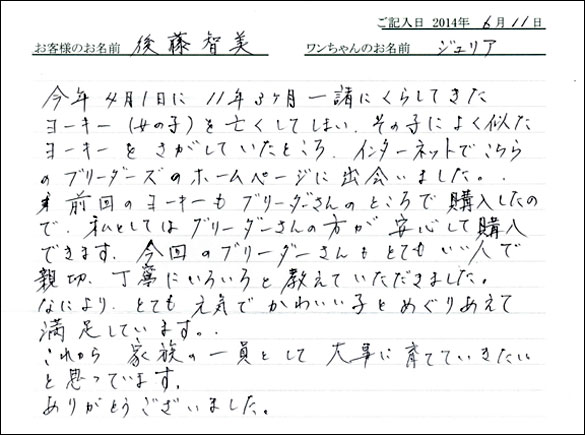 ご記入日 2014年 6月11日
お客様のお名前 後藤智美 ワンちゃんのお名前 ジュリア
今年4月1日に 11年3ヶ月 一諸にくらしてきた
ヨーキー(女の子)を亡くしてしまい、その子によく似た
ヨーキーをさがしていたところ、インターネットでこちら
のブリーダーズのホームページに出会いました。
前回のヨーキーもブリーダーさんのところで購入したの
で、私としてはブリーダーさんの方が安心して購入
できます。今回のブリーダーさんもとてもいい人で
親切、丁寧にいろいろと教えていただきました。
なにより、とても元気でかわいい子とめぐりあえて
満足しています。
これから家族の一員として大事に育てていきたい
と思っています。
ありがとうございました。